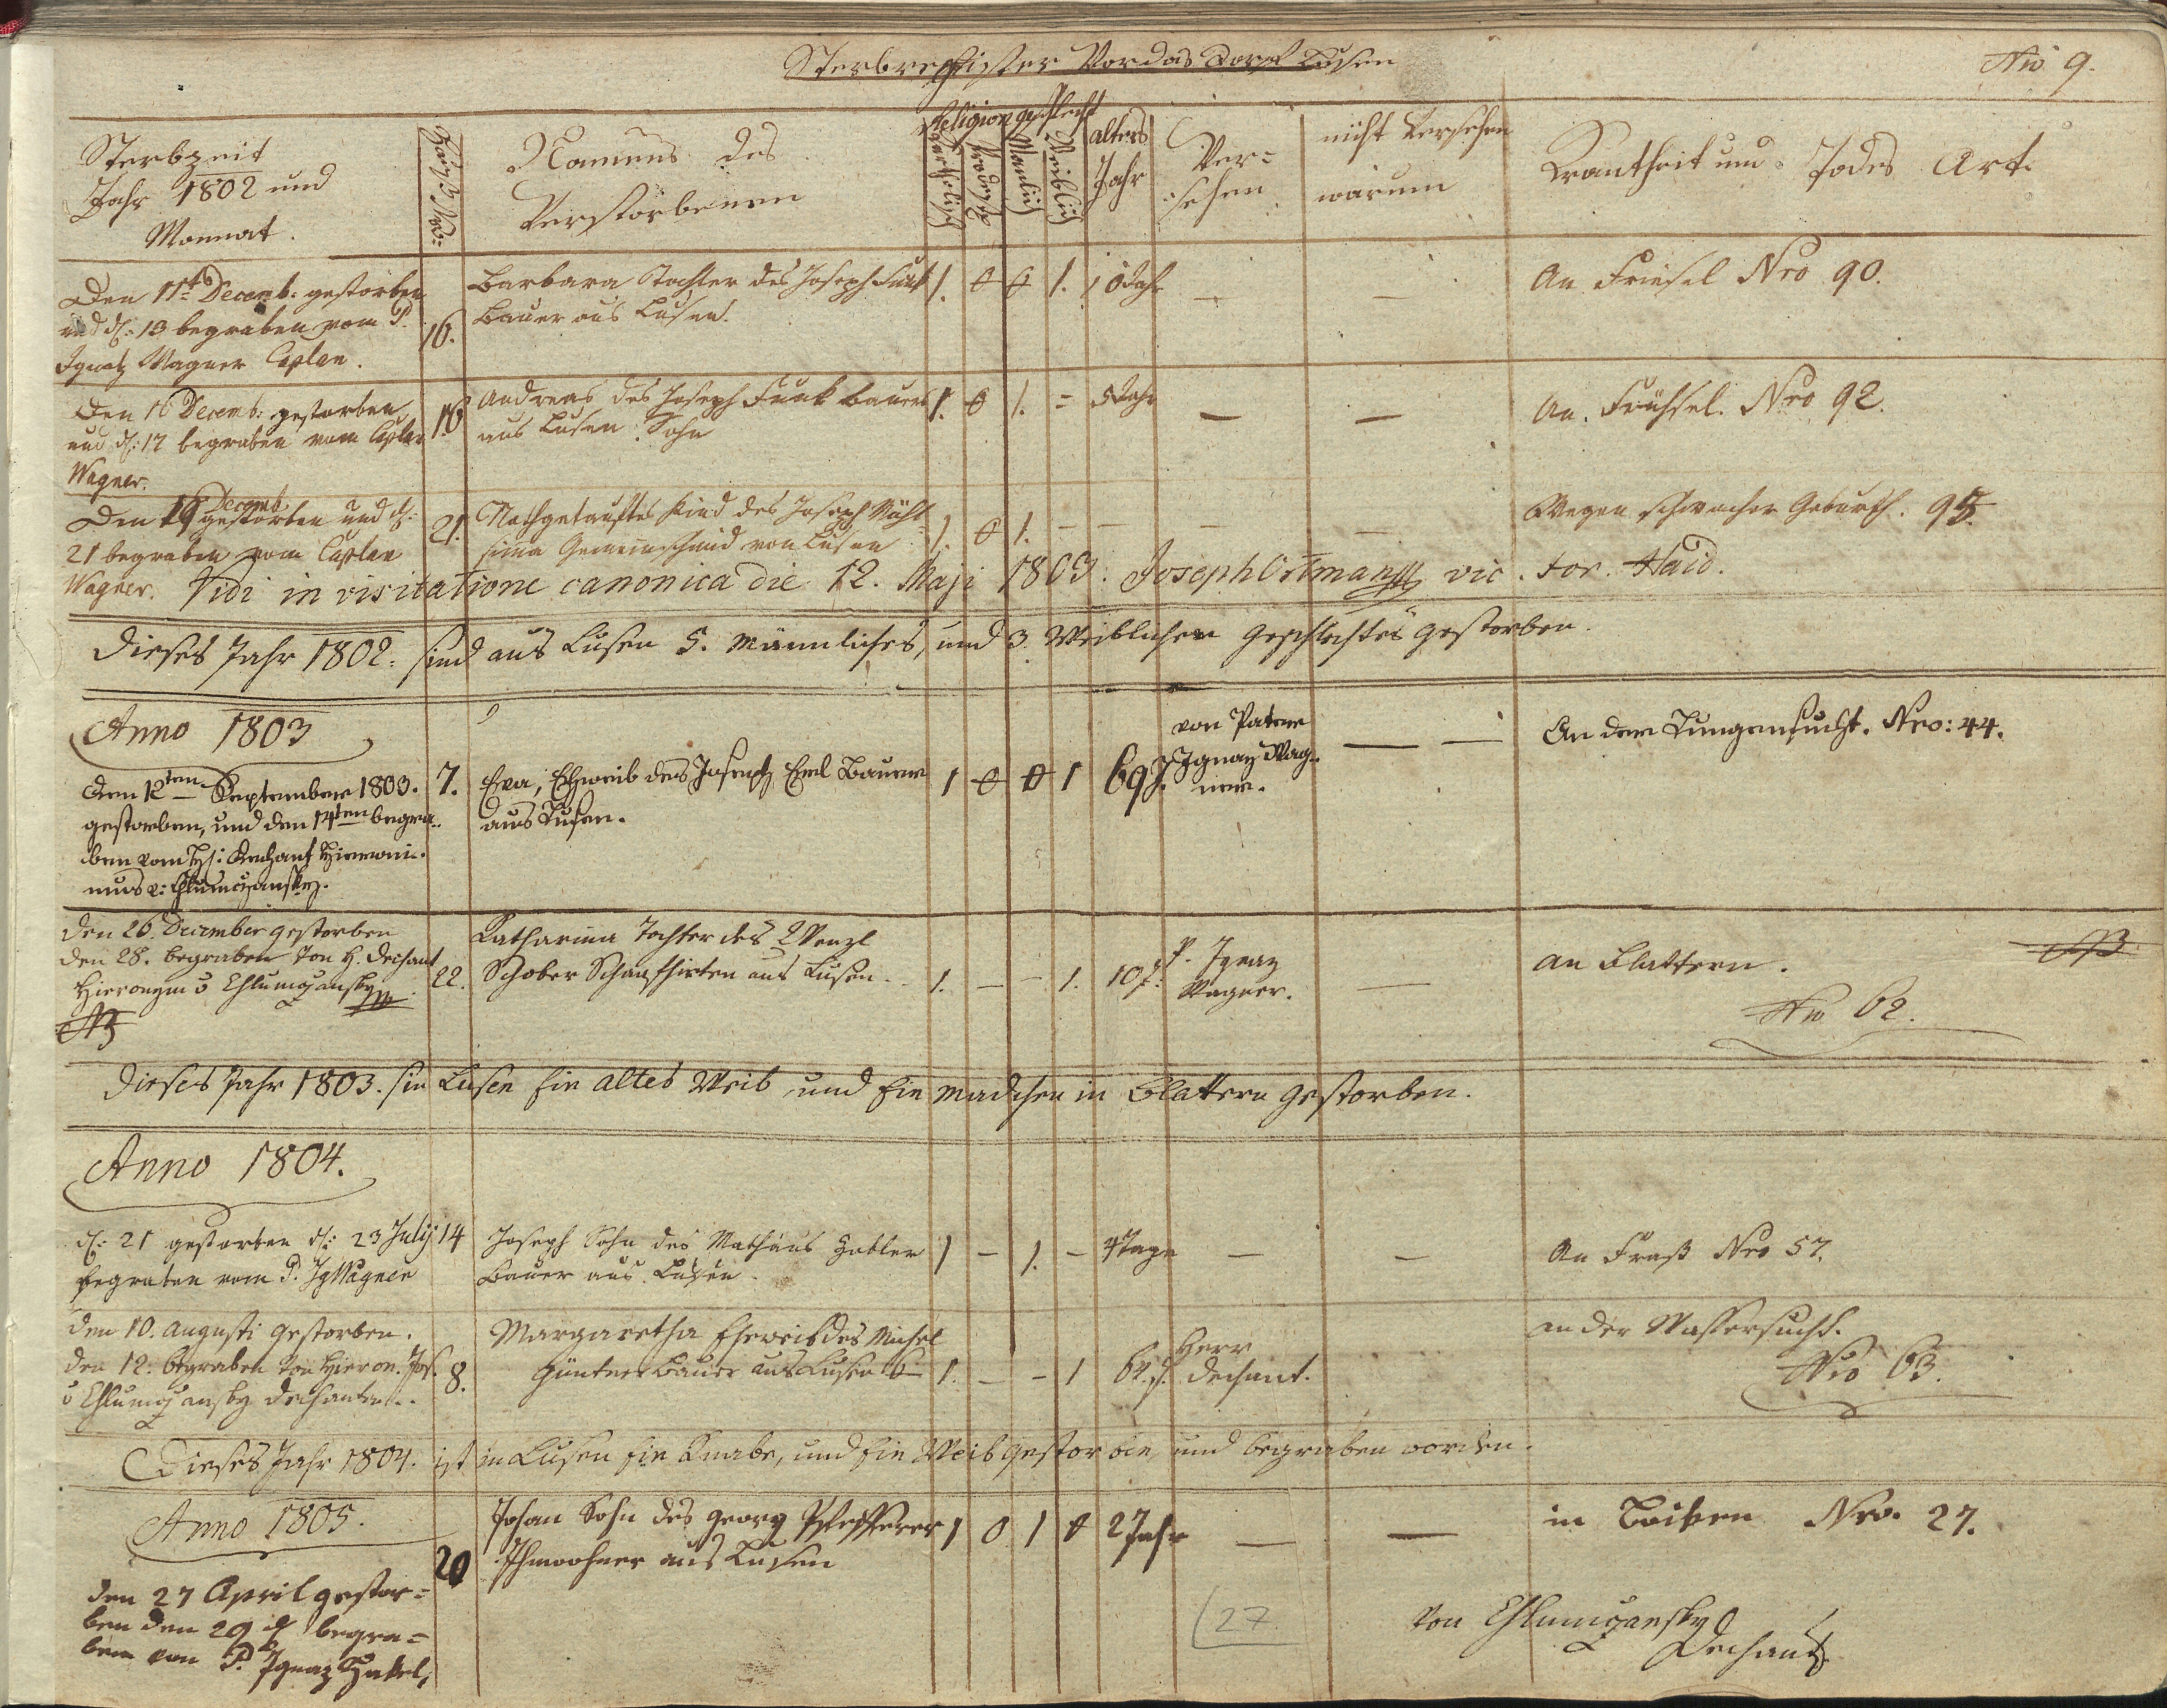 Sterbregister Vor das Dorf Lusen
Nro 9.
Sterbzeit
Jahr 1802 und
Monnat.
Hauß Nro:
Namens des
Verstorbenen
Religion
Katholisch
Geschlecht
Mänlich
Weiblich
alters
Jahr
Ver=
sehen
nicht Versehen
warum
Krankheit und Todes Art.
Den 11t Decemb. gestorben
und d: 13 begraben vom P.
Ignatz Wagner Caplan.
16.
Barbara Tochter des Joseph Funk
Bauer aus Lusen.
1. 0 0 1. 10 Jahr — —
An Friesel Nro 90.
Den 16 Decemb: gestorben
und d: 17 begraben vom Caplan
Wagner.
16
Andreas des Joseph Funk Bauers
aus Lusen Sohn
1. 0 1. = 5 Jahr — —
An Frühsel. Nro 92.
Decemb
Den 19 gestorben und d:
21 begraben vom Caplan
Wagner.
21.
Nothgetauftes Kind des Joseph
Gemeinschmid von Lusen
1. 0 1. – – – –
Wegen schwacher Geburth. 95.
Vidi in visitatione canonica die 12. Maji 1803. Joseph Ortmann vic. for. Haid.
Dieses Jahr 1802. sind aus Lusen 5. Männliches, und 3. Weiblichen Geschlechtes gestorben.
Anno 1803
Den 12ten September 1803.
gestorben, und den 14ten begra=
ben vom H: Dechant Hieroni=
mus v: Chlumczansky.
7.
Eva, Eheweib des Joseph Erl Bauer
aus Lusen.
1 0 0 1 69 J.
von Pater
Ignaz Wag=
ner.
— —
An der Lungensucht. Nro: 44.
Den 26. December gestorben
den 28. begraben von H. Dechant
Hieronym v Chlumczansky
22.
Katharina Tochter des Wenzl
Schober Schafhirten aus Lusen.
1. – – 1. 10 J.
P. Ignaz
Wagner.
—
an Blattern.
Nro 62.
Dieses Jahr 1803. sin Lusen Ein altes Weib und Ein Madchen in Blattern gestorben.
Anno 1804.
d: 21 gestorben d: 23 July
begraben vom P. Ig Wagner
14
Joseph Sohn des Mathäus Zobler
Bauer aus Lusen.
1 – 1. – 4 Tage — —
An Fraß Nro 57.
den 10. Augusti gestorben.
den 12. begraben von Hieron. Jos.
v Chlumczansky Dechanten.
8.
Margaretha Eheweib des Michel
Güntner Bauer aus Lusen
1. – – 1 64 J.
Herr
Dechant.
an der Wassersucht.
Nro 63.
Dieses Jahr 1804. ist in Lusen Ein Knabe, und Ein Weib gestorben, und begraben worden.
Anno 1805.
den 27 April gestor=
ben den 29 d begra=
ben von P. Ignaz Habel,
20
Johan Sohn des Georg Pfefferer
Ihnwohner aus Lusen
1 0 1 0 2 Jahr — —
in Nro. 27.
27
Von Chlumczansky
Dechant